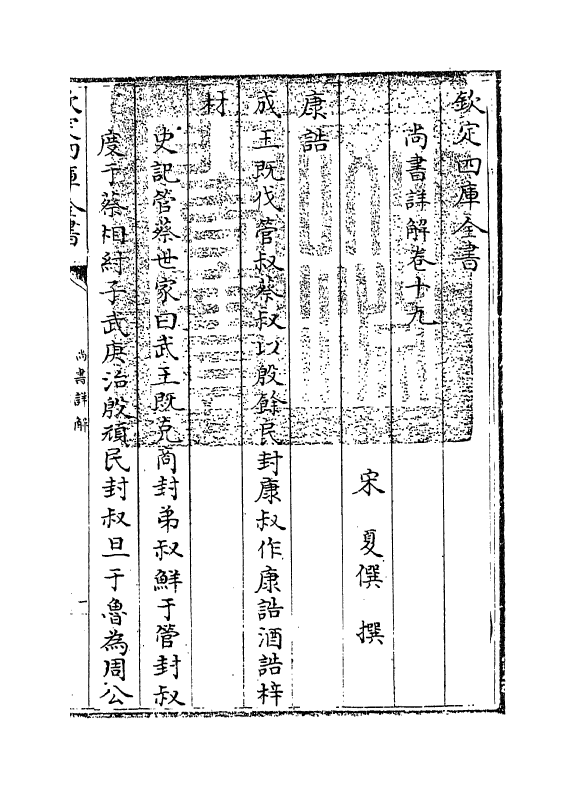 欽定四庫全書
尚書詳解卷十九
宋 夏僎 撰
康誥
成王既伐管叔蔡叔以殷餘民封康叔作康誥酒誥梓
材
史記管蔡世家曰武王既克商封弟叔鮮于管封叔
慶于蔡相紂子武庚治殷頑民封叔旦于魯為周公
欽定四庫全書
尚書詳解
一